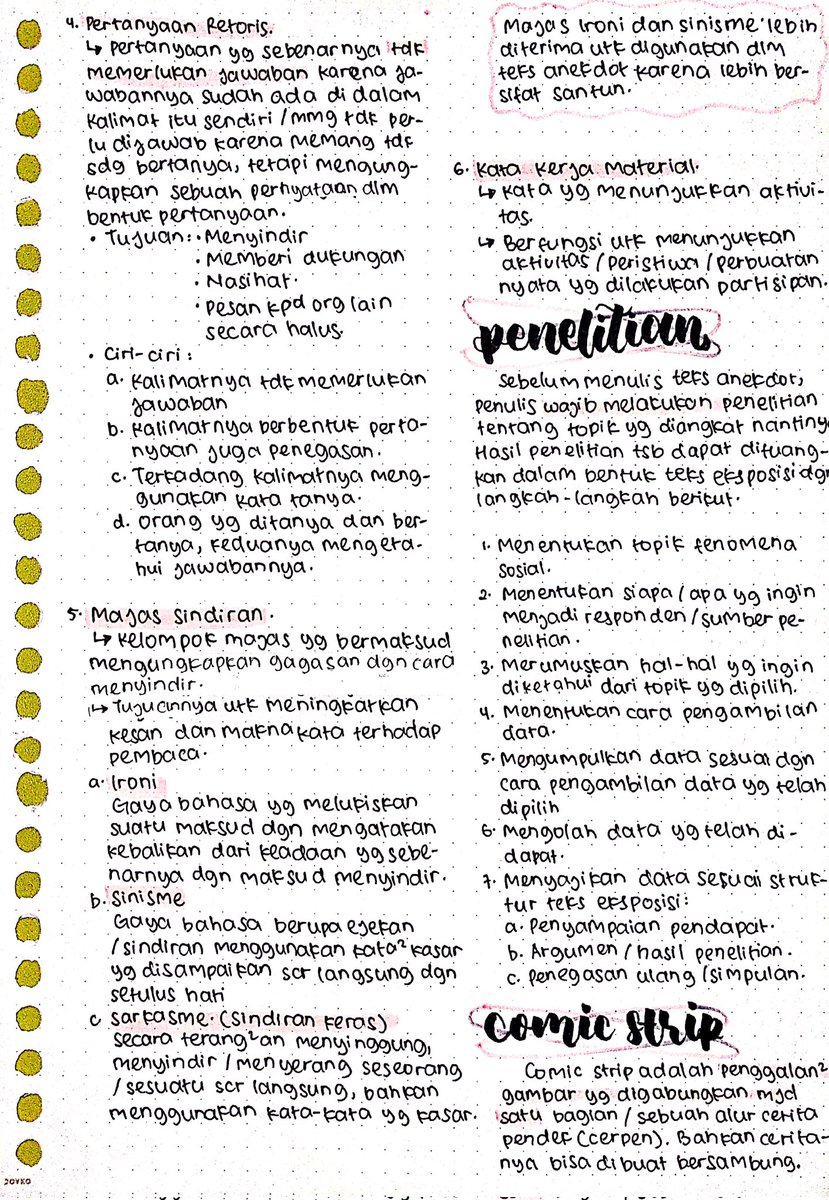 4. Pertanyaan Retoris.
↳ pertanyaan yg sebenarnya tdk
memerlukan jawaban karena ja-
wabannya sudah ada di dalam
kalimat itu sendiri / mmg tdk per-
lu dijawab karena memang tdk
sdg bertanya, tetapi mengung-
kapkan sebuah pernyataan dlm
bentuk pertanyaan.
• Tujuan: • Menyindir
• Memberi dukungan
• Nasihat.
• Pesan kpd org lain
secara halus.
• Ciri-ciri :
a. Kalimatnya tdk memerlukan
jawaban
b. Kalimatnya berbentuk perta-
nyaan juga penegasan.
c. Terkadang kalimatnya meng-
gunakan kata tanya.
d. Orang yg ditanya dan ber-
tanya, keduanya mengeta-
hui jawabannya.
5. Majas Sindiran.
↳ Kelompok majas yg bermaksud
mengungkapkan gagasan dgn cara
menyindir.
↳ Tujuannya utk meningkatkan
kesan dan makna kata terhadap
pembaca.
a. Ironi
Gaya bahasa yg melukiskan
suatu maksud dgn mengatakan
kebalikan dari keadaan yg sebe-
narnya dgn maksud menyindir.
b. Sinisme
Gaya bahasa berupa ejekan
/sindiran menggunakan kata² kasar
yg disampaikan scr langsung dgn
setulus hati
c. Sarkasme. (Sindiran keras)
Secara terang²an menyinggung,
menyindir / menyerang seseorang
/ sesuatu scr langsung, bahkan
menggunakan kata-kata yg kasar.
JOYKO
Majas Ironi dan sinisme lebih
diterima utk digunakan dlm
teks anekdot karena lebih ber-
sifat santun.
6. Kata Kerja Material.
↳ Kata yg menunjukkan aktivi-
tas.
↳ Berfungsi utk menunjukkan
aktivitas / peristiwa / perbuatan
nyata yg dilakukan partisipan.
penelitian
Sebelum menulis teks anekdot,
penulis wajib melakukan penelitian
tentang topik yg diangkat nantiny
Hasil penelitian tsb dapat dituang-
kan dalam bentuk teks eksposisi dgn
langkah-langkah berikut.
1. Menentukan topik fenomena
sosial.
2. Menentukan siapa / apa yg ingin
menjadi responden / sumber pe-
nelitian.
3. Merumuskan hal-hal yg ingin
diketahui dari topik yg dipilih.
4. Menentukan cara pengambilan
data.
5. Mengumpulkan data sesuai dgn
cara pengambilan data yg telah
dipilih
6. Mengolah data yg telah di-
dapat.
7. Menyajikan data sesuai struk-
tur teks eksposisi:
a. Penyampaian pendapat.
b. Argumen / hasil penelitian.
c. Penegasan ulang /simpulan.
comic strip
Comic strip adalah penggalan²
gambar yg digabungkan mjd
satu bagian / sebuah alur cerita
pendek (cerpen). Bahkan cerita-
nya bisa dibuat bersambung.